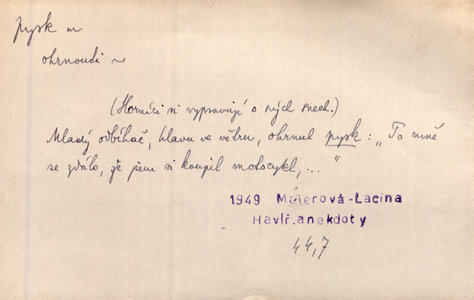 pysk m
ohrnouti ~
(Horníci si vypravují o svých snech.)
Mladý odbíhač, hlavu ve větru, ohrnul pysk: „To mně
se zdálo, že jsem si koupil motocykl, ... "
1949 Majerová-Lacina
Havíř.anekdoty
44,7